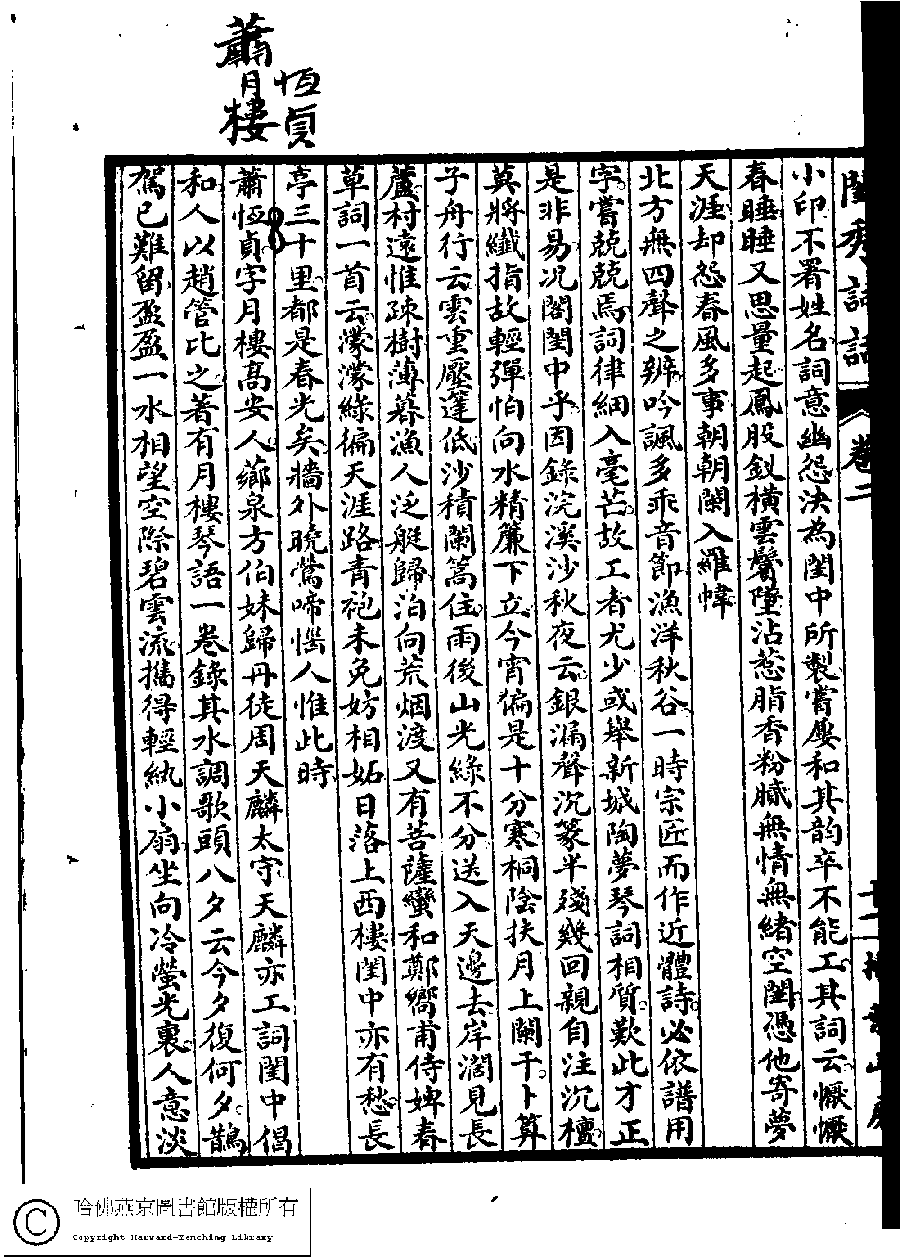 閨秀詞話
卷二
小印不署姓名詞意幽怨決為閨中所製嘗屢和其韵卒不能工其詞云懨懨
春睡睡又思量起鳳股釵橫雲鬢墜沾惹脂香粉膩無情無緒空閨憑他寄夢
天涯却怨春風多事朝朝闌入羅幃
北方無四聲之辨吟諷多乖音節漁洋秋谷一時宗匠而作近體詩必依譜用
字嘗兢兢焉詞律細入毫芒故工者尤少或舉新城陶夢琴詞相質歎此才正
是非易况閤閨中乎因錄浣溪沙秋夜云銀漏聲沉篆半殘幾回親自注沉檀
莫將纖指故輕彈怕向水精簾下立今宵偏是十分寒桐陰扶月上闌干卜算
子舟行云雲重壓篷低沙積闌篙住雨後山光綠不分送入天邊去岸濶見長
蘆村遠惟疎樹薄暮漁人泛艇歸泊向荒烟渡又有菩薩蠻和鄭嚮甫侍婢春
草詞一首云濛濛綠徧天涯路青袍未免妨相妬日落上西樓閨中亦有愁長
亭三十里都是春光矣牆外曉鶯啼惱人惟此時
蕭恆貞字月樓高安人薌泉方伯妹歸丹徒周天麟太守天麟亦工詞閨中倡
和人以趙管比之著有月樓琴語一卷錄其水調歌頭八夕云今夕復何夕鵲
駕已難留盈盈一水相望空際碧雲流攜得輕紈小扇坐向冷螢光裏人意淡
恆貞
蕭月樓
哈佛燕京圖書館版權所有
Copyright Harvard-Yenching Library